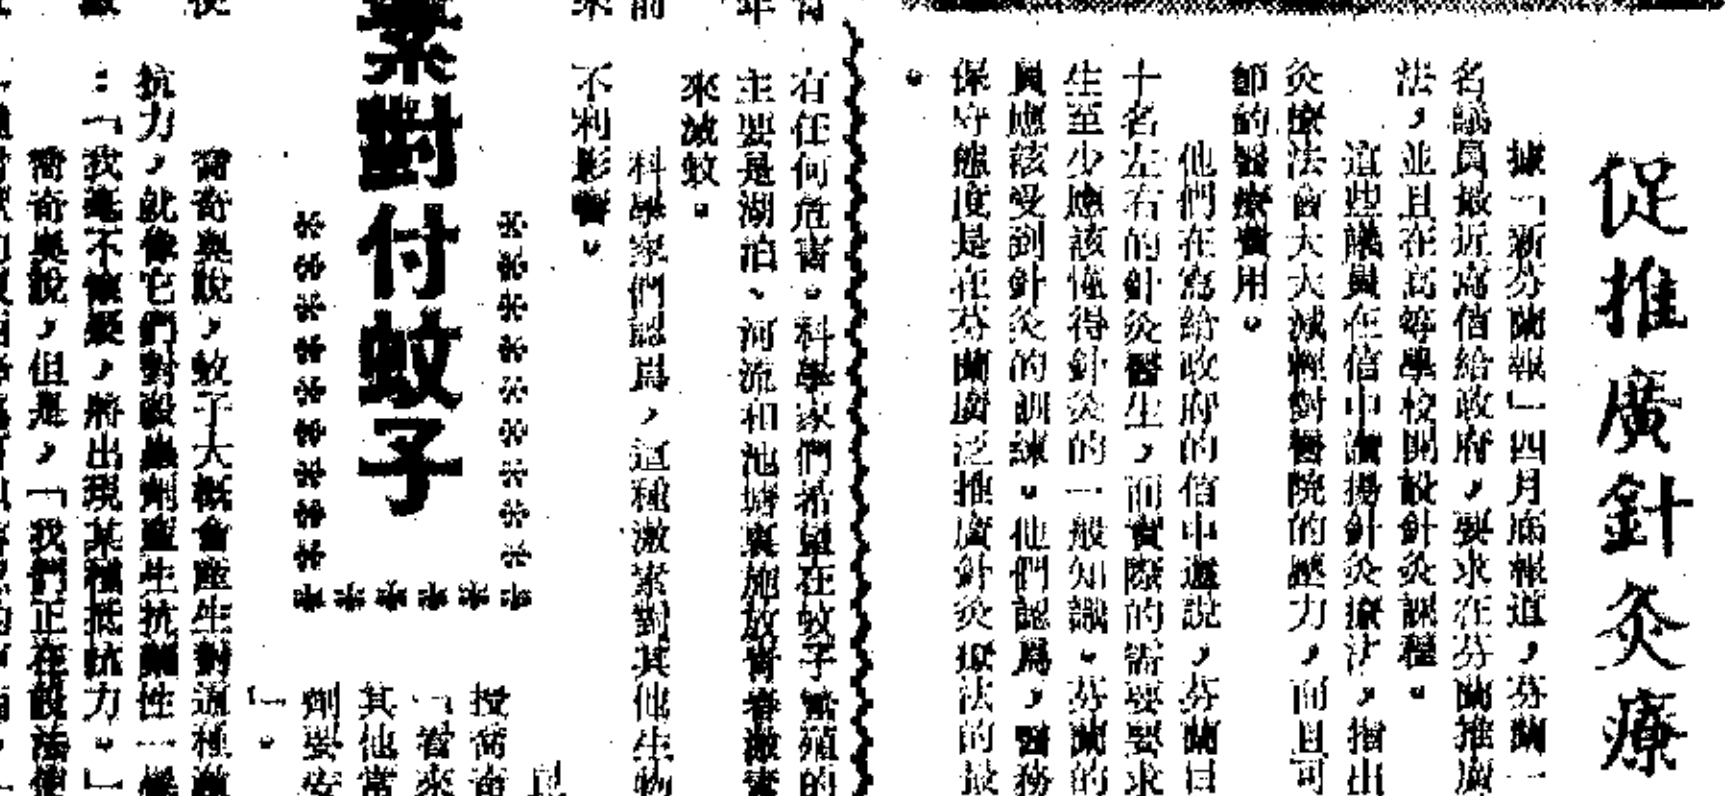 促推廣針灸療
據「新芬蘭報」四月底報道，芬蘭一
名議員最近寫信給政府，要求在芬蘭推廣
法，並且在高等學校開設針灸課程。
這些議員在信中讚揚針灸療法，指出
灸療法會大大減輕對醫院的壓力，而且可
節的醫療費用。
他們在寫給政府的信中還說，芬蘭目
十名左右的針灸醫生，而實際的需要要求
生至少應該懂得針灸的一般知識。芬蘭的
員應該受到針灸的訓練。他們認爲，醫務
保守態度是在芬蘭廣泛推廣針灸療法的最
。
有任何危害。科學家們希望在蚊子繁殖的
主要是湖泊、河流和池塘裏施放青春激素
來滅蚊。
科學家們認爲，這種激素對其他生物
不利影響。
素對付蚊子
授喬奇
「看來
其他當
劑要安
」。
喬奇奧說，蚊子大概會產生對這種激
抗力，就像它們對殺蟲劑產生抗藥性一樣
：「我毫不懷疑，將出現某種抵抗力。」
喬奇奧說，但是，「我們正在設法使